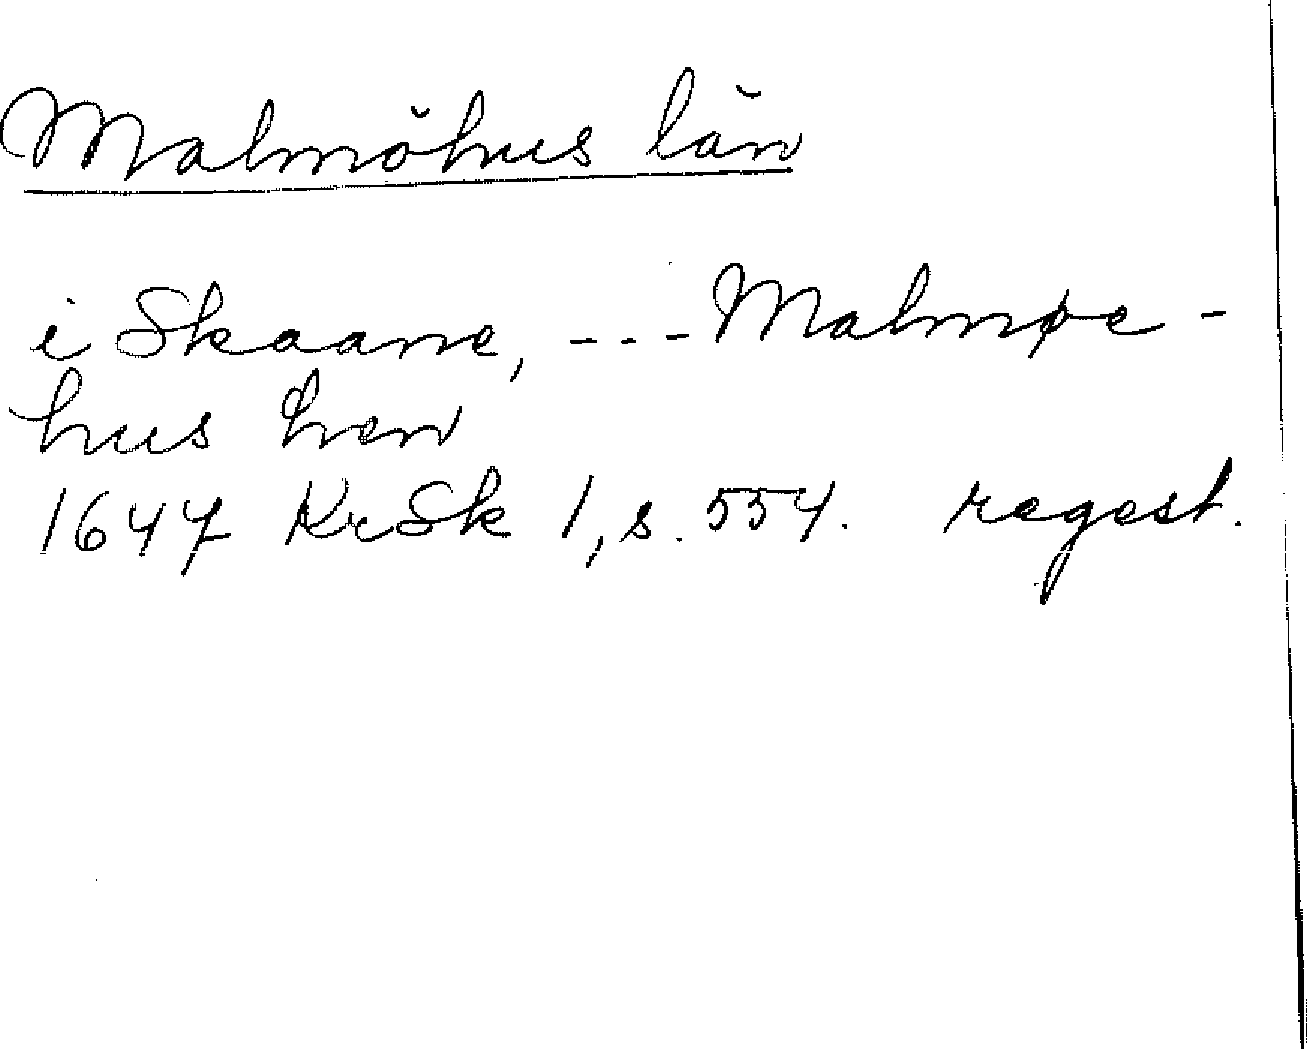 Malmöhus län
i Skaane, --- Malmøe-
hus len
1647 KrSk 1, s. 554. regest.